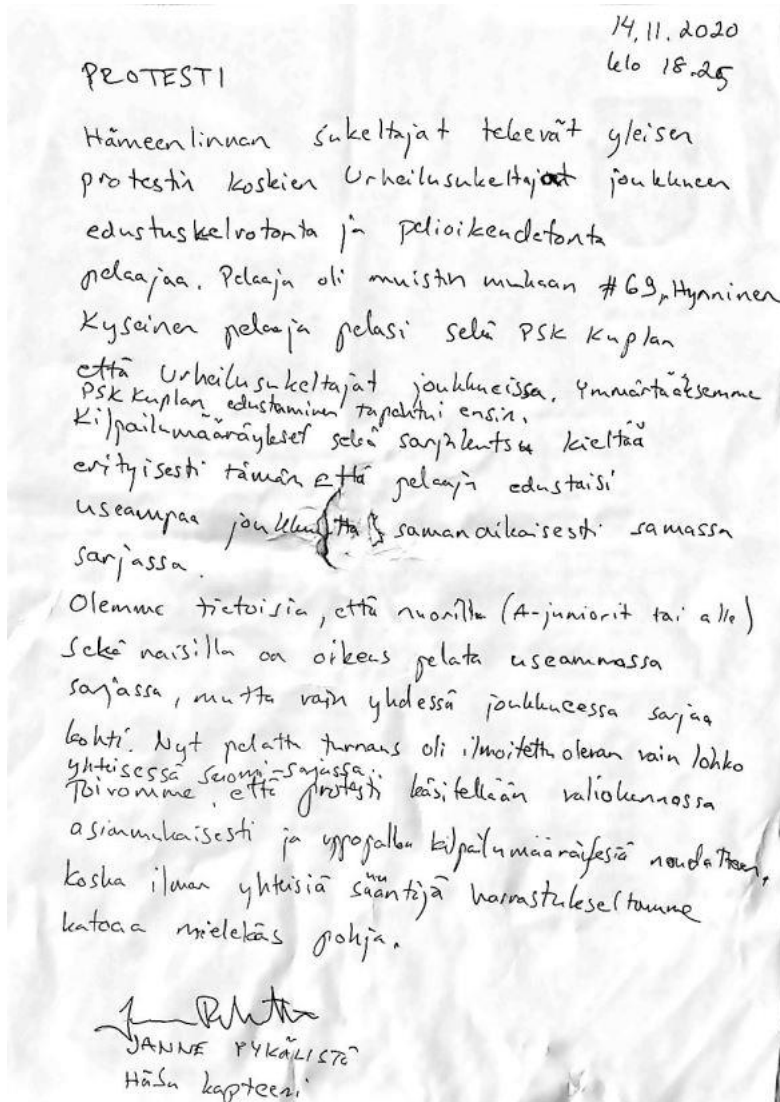 14.11.2020
klo 18.25
PROTESTI
Hämeenlinnan Sukeltajat tekevät yleisen
protestin koskien Urheilusukeltajat joukkueen
edustuskelvotonta ja pelioikeudetonta
pelaajaa. Pelaaja oli muistin mukaan #69, Hynninen
Kyseinen pelaaja pelasi sekä PSK Kuplan
että Urheilusukeltajat joukkueissa. Ymmärtääksemme
PSK Kuplan edustaminen tapahtui ensin.
Kilpailumääräykset sekä sarjakutsu kieltää
erityisesti tämän että pelaaja edustaisi
useampaa joukkuetta samanaikaisesti samassa
sarjassa.
Olemme tietoisia, että nuorilla (A-juniorit tai alle)
sekä naisilla on oikeus pelata useammassa
sarjassa, mutta vain yhdessä joukkueessa sarjaa
kohti. Nyt pelattu turnaus oli ilmoitettu olevan vain lohko
yhteisessä Suomi-sarjassa.
Toivomme, että protesti käsitellään valiokunnassa
asianmukaisesti ja uppopallon kilpailumääräyksiä noudattaen,
koska ilman yhteisiä sääntöjä harrastukseltamme
katoaa mielekäs pohja.
JANNE PYKÄLISTÖ
HäSu kapteeni